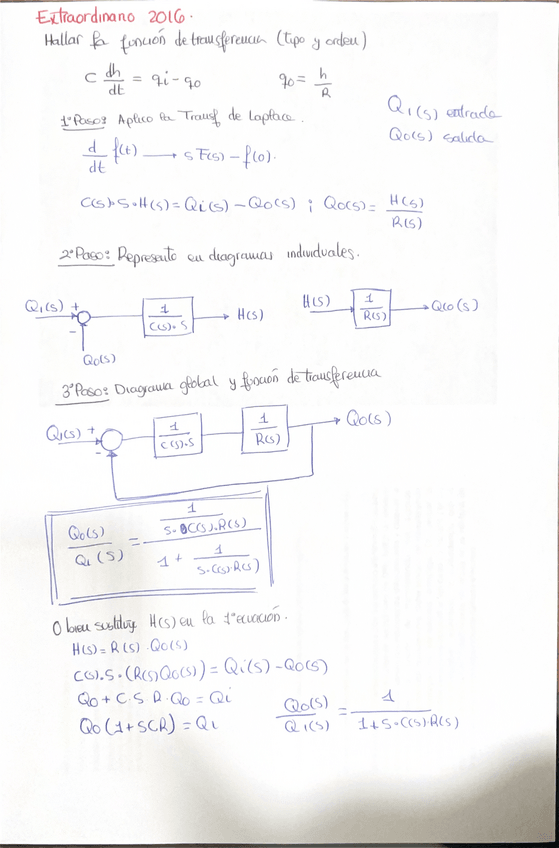 Extraordinario 2016.
Hallar la función de transferencia (tipo y orden)
C dh/dt = qi - qo    qo = h/R
Q1(s) entrada
1º Paso: Aplico la Transf de Laplace.
Qo(s) salida
d/dt f(t) → s F(s) - f(o).
C(s)·S·H(s) = Qi(s) - Qo(s) ; Qo(s) = H(s)/R(s)
2º Paso: Represento en diagramas individuales.
Q1(s) + 1/C(s)·S → H(s)    H(s) 1/R(s) → Qo(s)
-
Qo(s)
3º Paso: Diagrama global y función de transferencia
Q1(s) + - 1/C(s)·S 1/R(s) → Qo(s)
Qo(s)/Qi(s) = (1/S·C(s)·R(s))/(1 + 1/S·C(s)·R(s))
O bien sustituyo H(s) en la 1ª ecuación.
H(s) = R(s)·Qo(s)
C(s)·S·(R(s)Qo(s)) = Qi(s) - Qo(s)
Qo + C·S·R·Qo = Qi
Qo(1+SCR) = Qi    Qo(s)/Q1(s) = 1/1+S·C(s)·R(s)